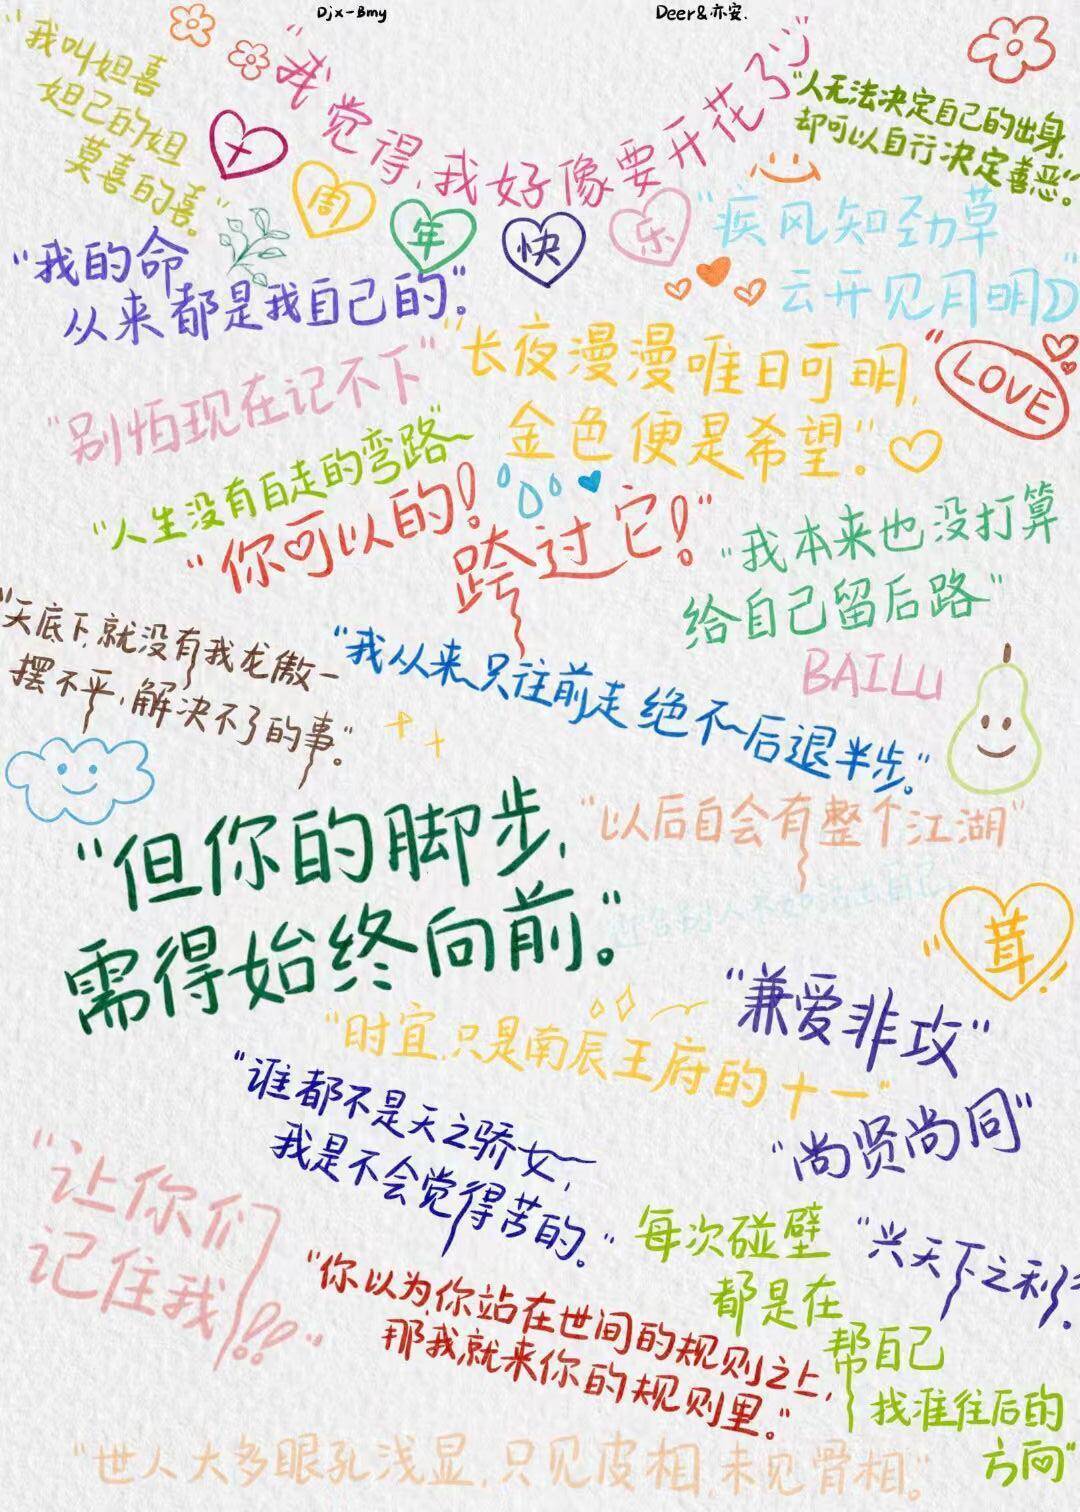 Djx-Bmy
Deer&亦安.
"我叫妲喜
妲己的妲
莫喜的喜。"
"我觉得,我好像要开花了"
"人无法决定自己的出身,
却可以自行决定善恶。"
十周年快乐
"疾风知劲草
云开见月明"
"我的命
从来都是我自己的"。
"别怕现在记不下"
"长夜漫漫唯日可明,
金色便是希望。"
LOVE
"人生没有白走的弯路"
"你可以的!
跨过它!"
"我本来也没打算
给自己留后路"
"天底下,就没有我龙傲一
摆不平,解决不了的事"。
"我从来只往前走绝不后退半步。"
BAILU
"但你的脚步,
需得始终向前。"
"以后自会有整个江湖"
"茸!"
"兼爱非攻"
"时宜,只是南辰王府的十一"
"谁都不是天之骄女,
我是不会觉得苦的。"
"尚贤尚同"
"让你们
记住我!!"
每次碰壁
都是在
帮自己
找准往后的
方向"
"兴天下之利"
"你以为,你站在世间的规则之上,
那我,就来你的规则里。"
"世人大多眼孔浅显,只见皮相,未见骨相。"